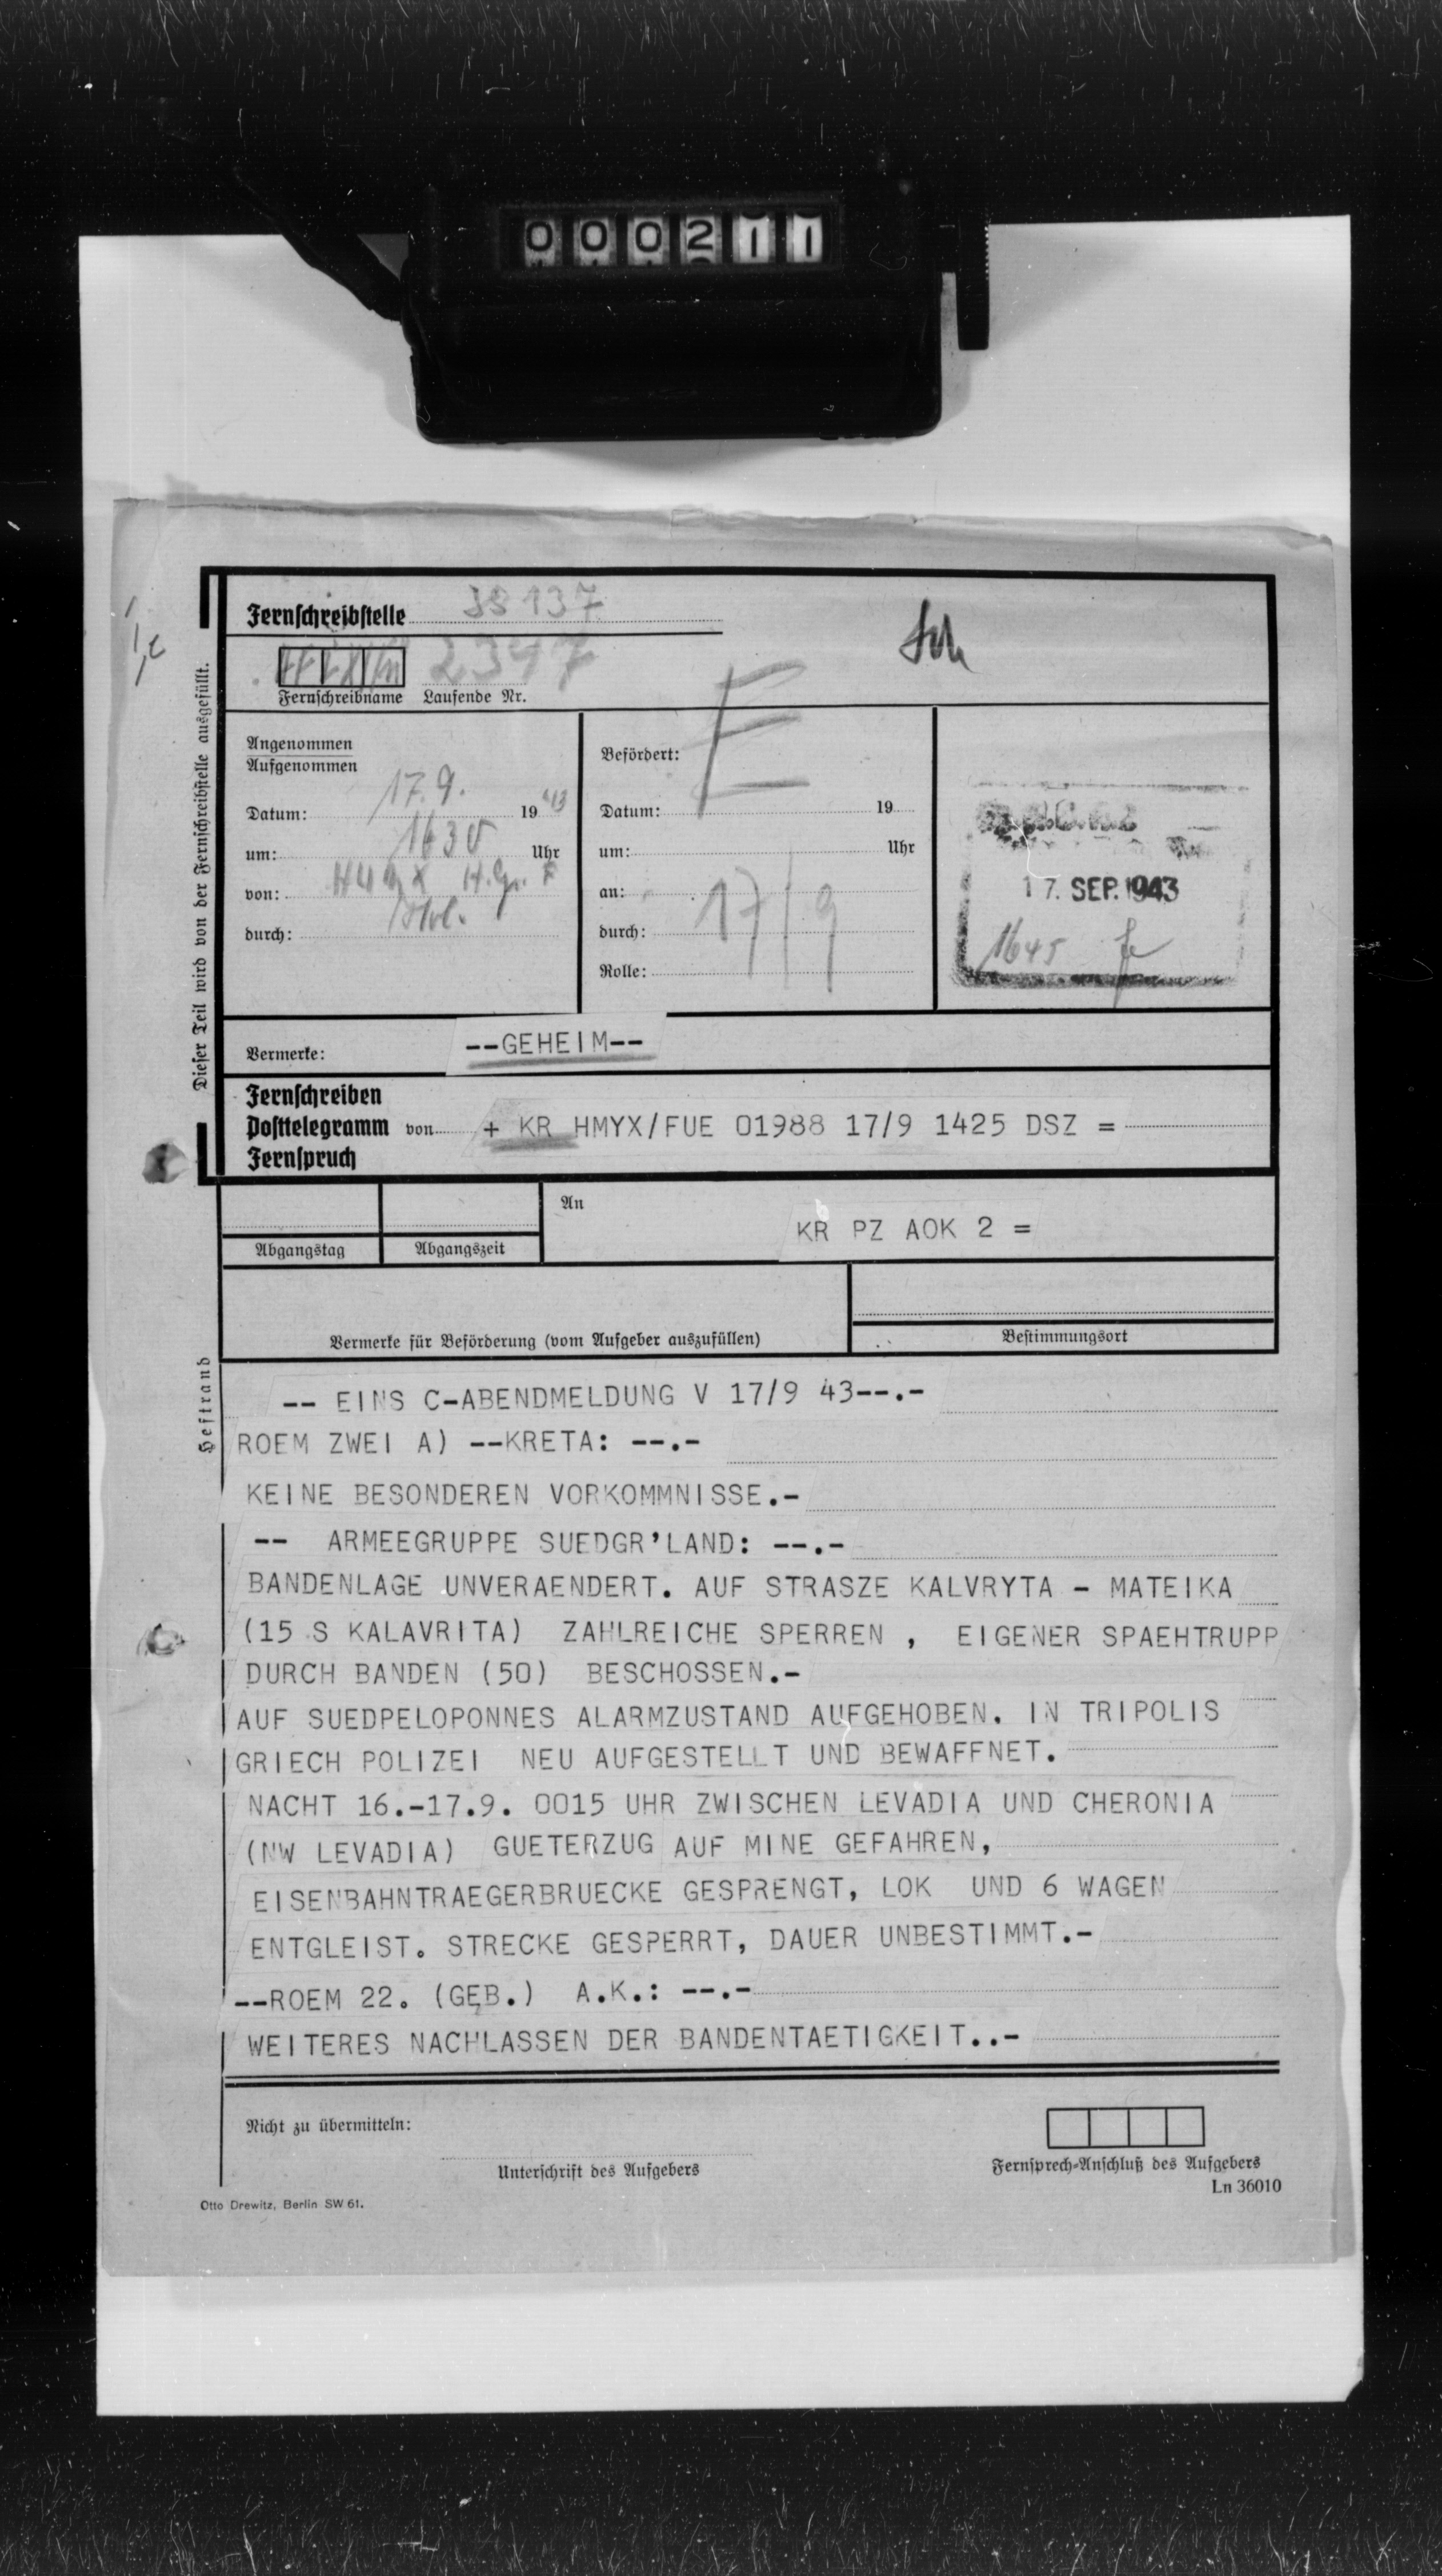 000211
Fernschreibstelle 38137
2347
Fernschreibname Laufende Nr.
Angenommen
Aufgenommen
Datum: 17.9. 19 43
um: 1630 Uhr
von: H.Gr. F
durch:
Befördert:
Datum: 19
um: Uhr
an:
durch: 17/9
Rolle:
17. SEP. 1943
1645
Dieser Teil wird von der Fernschreibstelle ausgefüllt.
Vermerke: --GEHEIM--
Fernschreiben
Posttelegramm von + KR HMYX/FUE 01988 17/9 1425 DSZ =
Fernspruch
An
KR PZ AOK 2 =
Abgangstag Abgangszeit
Vermerke für Beförderung (vom Aufgeber auszufüllen) Bestimmungsort
Heftrand
-- EINS C-ABENDMELDUNG V 17/9 43--.-
ROEM ZWEI A) --KRETA: --.-
KEINE BESONDEREN VORKOMMNISSE.-
-- ARMEEGRUPPE SUEDGR'LAND: --.-
BANDENLAGE UNVERAENDERT. AUF STRASZE KALVRYTA - MATEIKA
(15 S KALAVRITA) ZAHLREICHE SPERREN , EIGENER SPAEHTRUPP
DURCH BANDEN (50) BESCHOSSEN.-
AUF SUEDPELOPONNES ALARMZUSTAND AUFGEHOBEN. IN TRIPOLIS
GRIECH POLIZEI NEU AUFGESTELLT UND BEWAFFNET.
NACHT 16.-17.9. 0015 UHR ZWISCHEN LEVADIA UND CHERONIA
(NW LEVADIA) GUETERZUG AUF MINE GEFAHREN,
EISENBAHNTRAEGERBRUECKE GESPRENGT, LOK UND 6 WAGEN
ENTGLEIST. STRECKE GESPERRT, DAUER UNBESTIMMT.-
--ROEM 22. (GEB.) A.K.: --.-
WEITERES NACHLASSEN DER BANDENTAETIGKEIT..-
Nicht zu übermitteln:
Unterschrift des Aufgebers
Fernsprech-Anschluß des Aufgebers
Ln 36010
Otto Drewitz, Berlin SW 61.